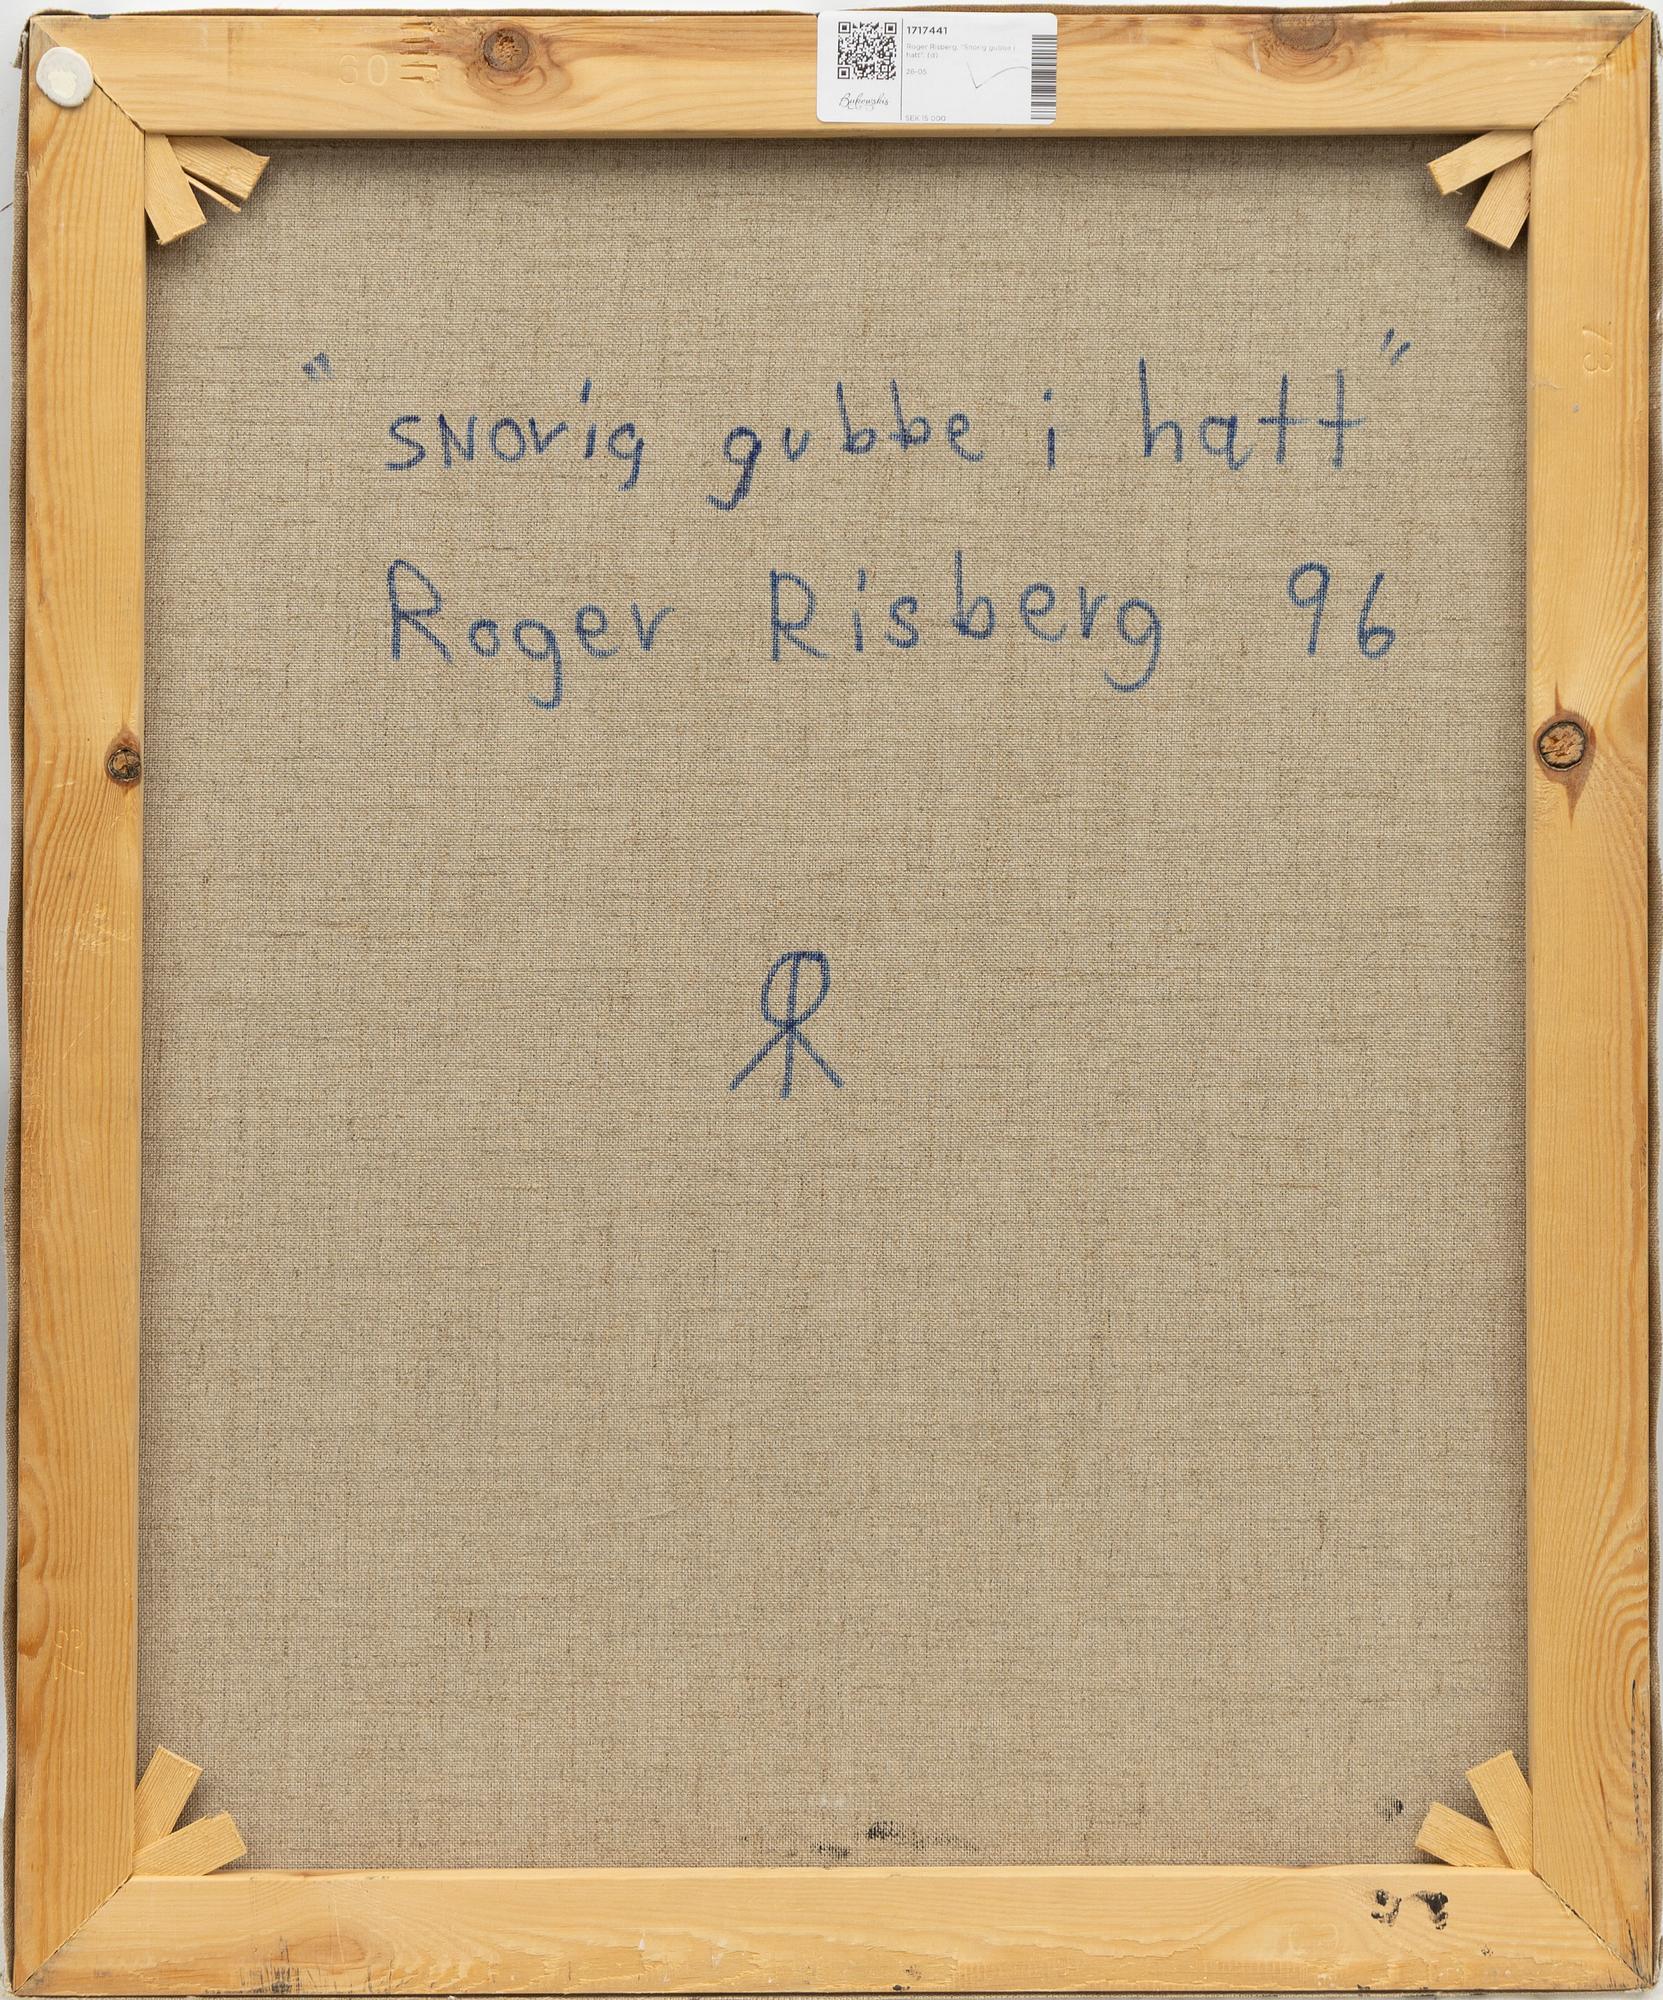 60
1717441
Roger Risberg, "Snorig gubbe i
hatt". (d)
26-05
Bukowskis
SEK 15 000
73
"snorig gubbe i hatt"
Roger Risberg 96
73